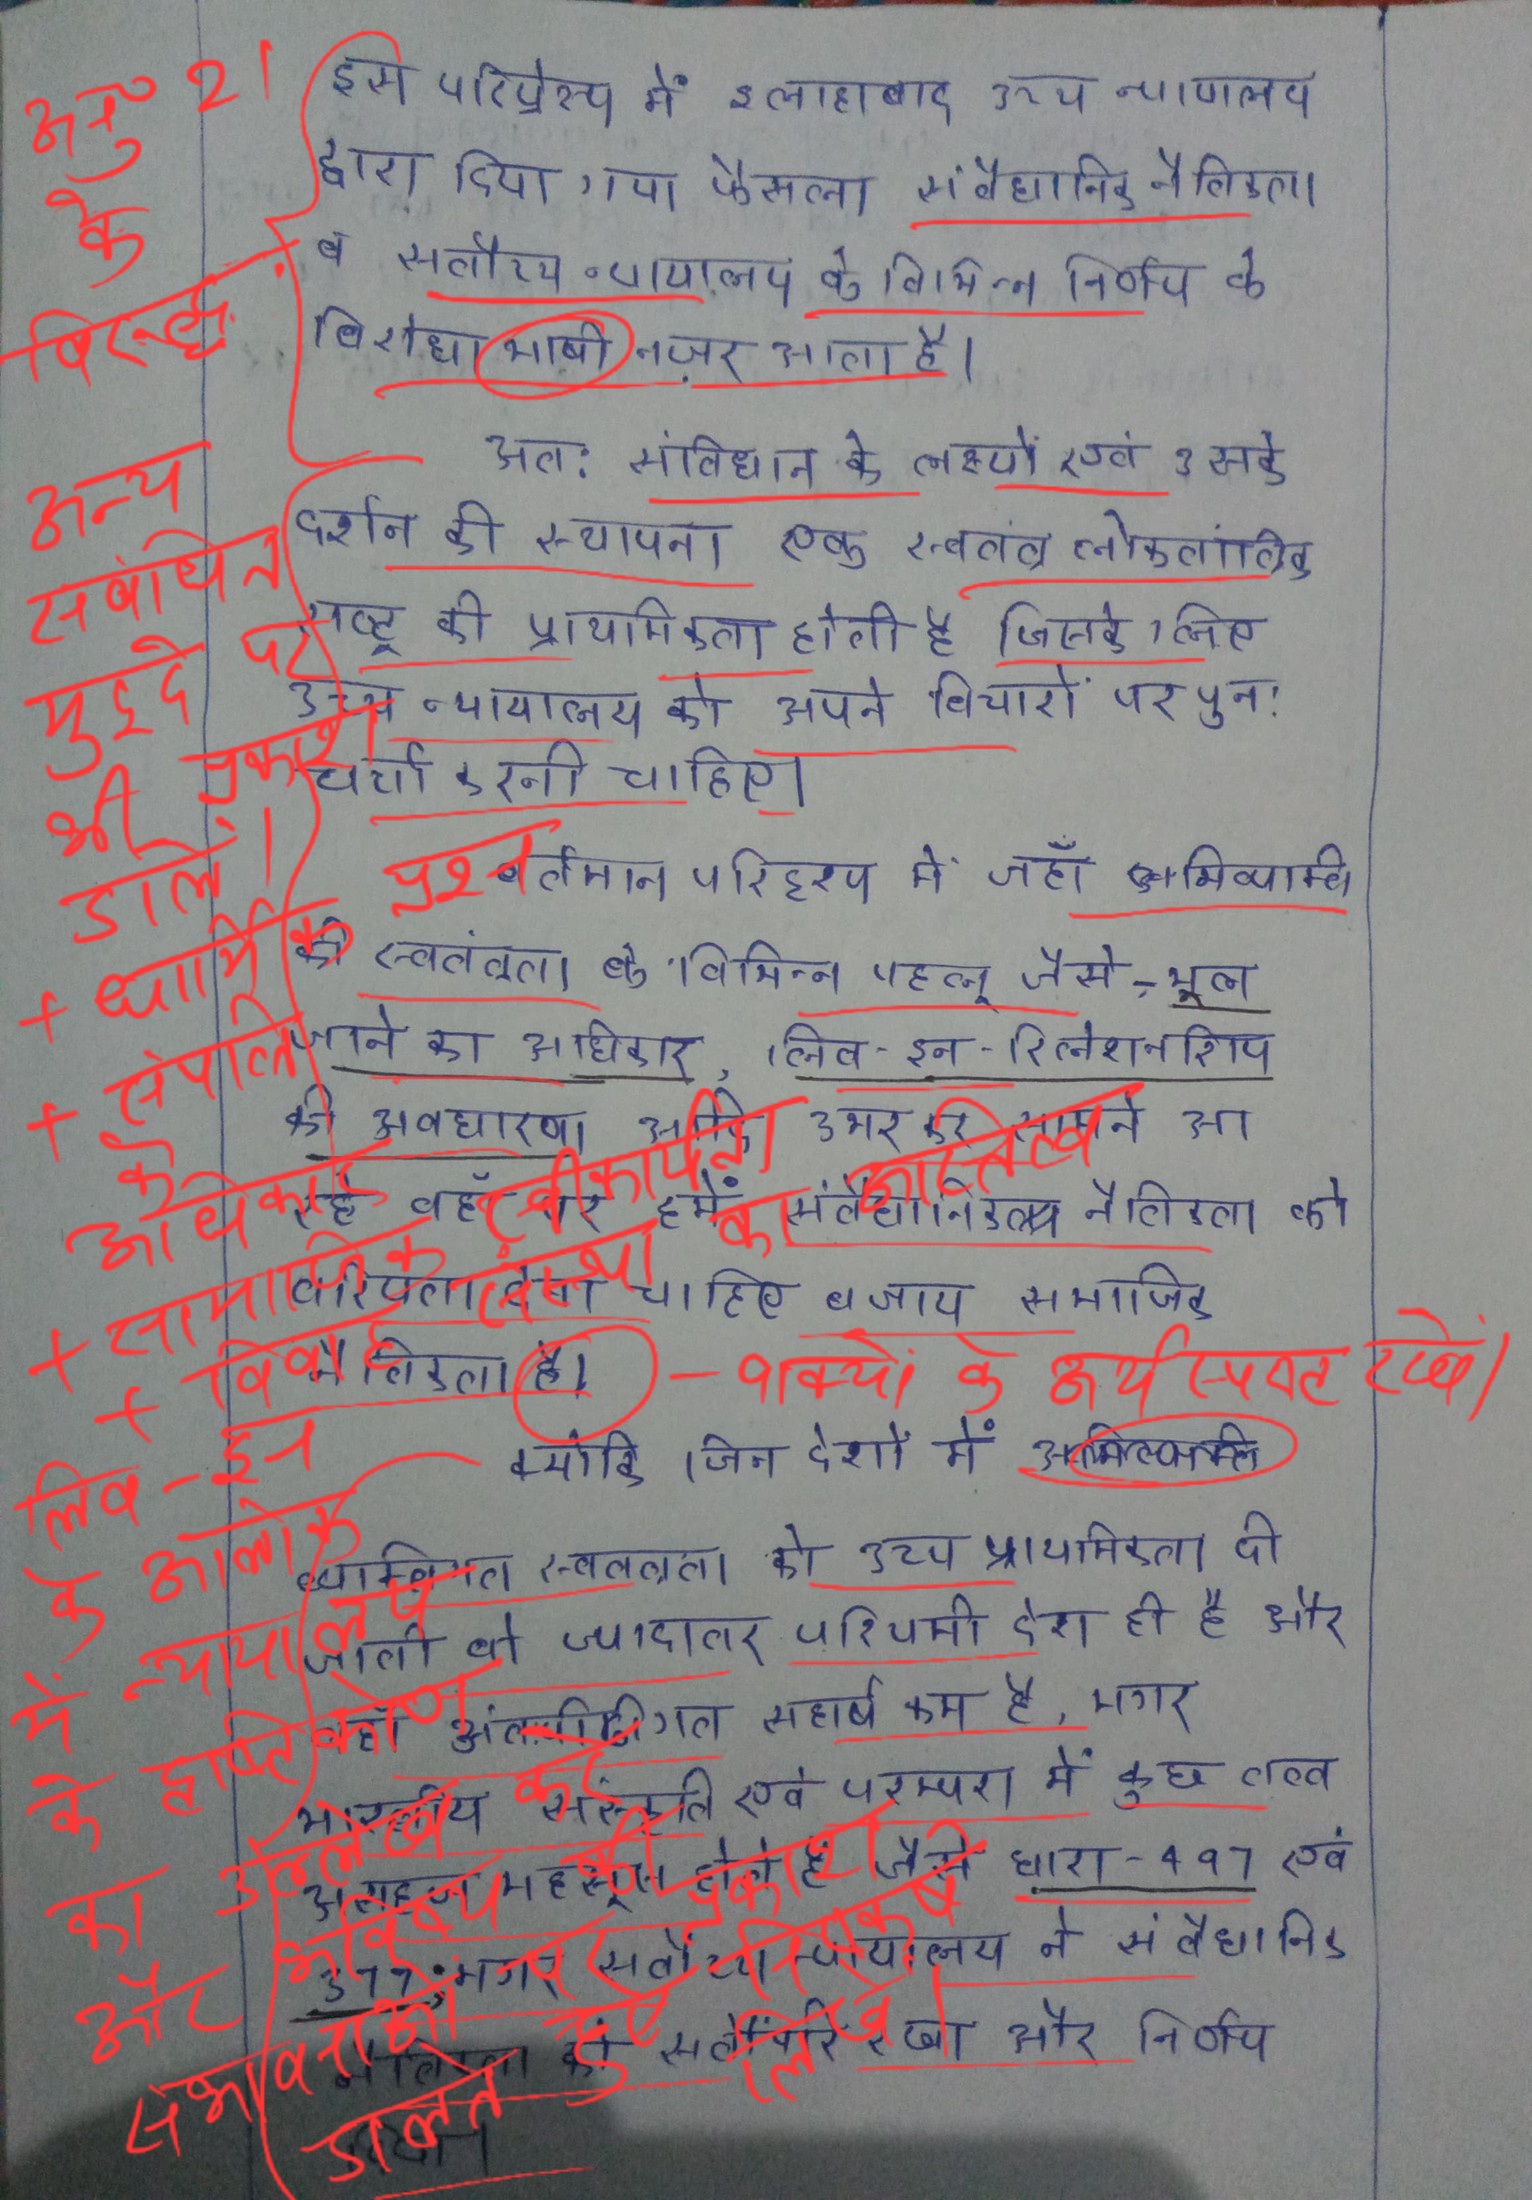 इस परिप्रेक्ष्य में इलाहाबाद उच्च न्यायालय
द्वारा दिया गया फैसला संवैधानिक नैतिकता
व सर्वोच्च न्यायालय के विभिन्न निर्णय के
विरोधाभाषी नज़र आता है।
अतः संविधान के लक्ष्यों एवं उसके
दर्शन की स्थापना एक स्वतंत्र लोकतांत्रिक
राष्ट्र की प्राथमिकता होती है जिसके लिए
उच्च न्यायालय को अपने विचारों पर पुनः
चर्चा करनी चाहिए।
वर्तमान परिदृश्य में जहाँ अभिव्यक्ति
की स्वतंत्रता के विभिन्न पहलू जैसे - भूल
जाने का अधिकार, लिव-इन-रिलेशनशिप
की अवधारणा आदि उभर कर सामने आ
रहे वहाँ पर हमें संवैधानिक नैतिकता को
वरियता देना चाहिए बजाय समाजिक
नैतिकता है।
क्योंकि जिन देशों में
व्यक्तिगत स्वतंत्रता को उच्च प्राथमिकता दी
जाती वो ज्यादातर पश्चिमी देश ही है और
वहाँ सहार्ष कम है, मगर
भारतीय संस्कृति एवं परम्परा में कुछ तत्व
असहज महसूस होते हैं जैसे धारा-497 एवं
377; मगर सर्वोच्च न्यायालय ने संवैधानिक
नैतिकता को सर्वोपरि रखा और निर्णय
दिया।
अनु० 21
के
विरुद्ध
अन्य
संबंधित
मुद्दे पर
भी प्रकाश
डालें।
+ धार्मिक प्रश्न
+ संपत्ति
के
अधिकार
+ सामाजिक स्वीकार्यता
+ विवाह संस्था का अस्तित्व
- वाक्यों के अर्थ स्पष्ट रखें।
लिव-इन
के आलोक
में न्यायालय
के दृष्टिकोण
का उल्लेख करें
और भविष्य की
संभावनाओं पर प्रकाश
डालते हुए निष्कर्ष
लिखें।